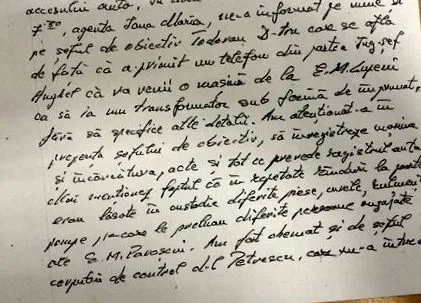 accesului auto,
7³⁰, agenta Tana Maria, ne-a informat pe mine și
pe șeful de obiectiv Todoran D-tru care se afla
de față că a primit un telefon din partea Ing. șef
Anghel că va veni o mașină de la E.M. Lupeni
ca să ia un transformator sub formă de împrumut,
fără să specifice alte detalii. Am atenționat-o în
prezența șefului de obiectiv, să înregistreze mașina
și încărcătura, acte și tot ce prevede registrul auto
menționez faptul că în repetate rânduri la poartă
erau lăsate în custodie diferite piese,
pompe, pe care le preluau diferite persoane angajate
ale E.M. Paroșeni. Am fost chemat și de șeful
corpului de control d-l Petrescu, care m-a